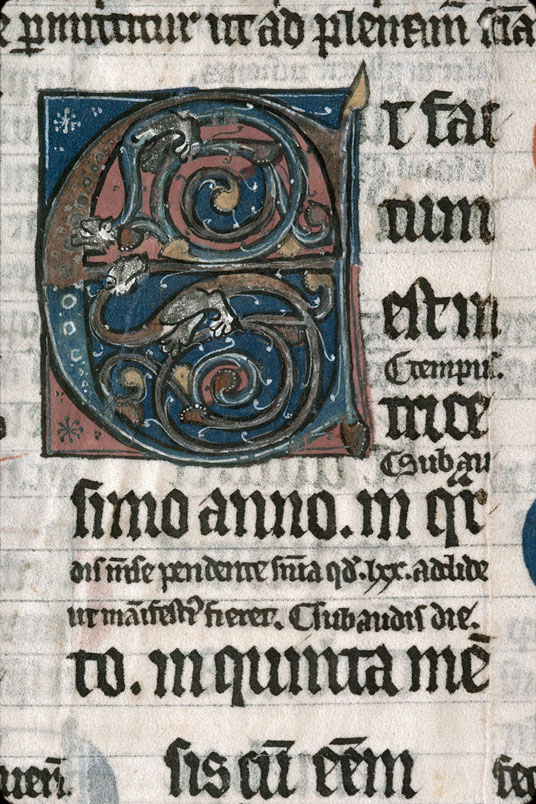 permittitur ut ad plenam
Et fac
tum
est in
Ctempus.
trice
Csub au
simo anno. in qr̄
dis mēse pendente sūia qđ. lxx. addide
ut māifestiꝰ fieret. Csubaudis die.
to. in quinta mē
sis cū eēm